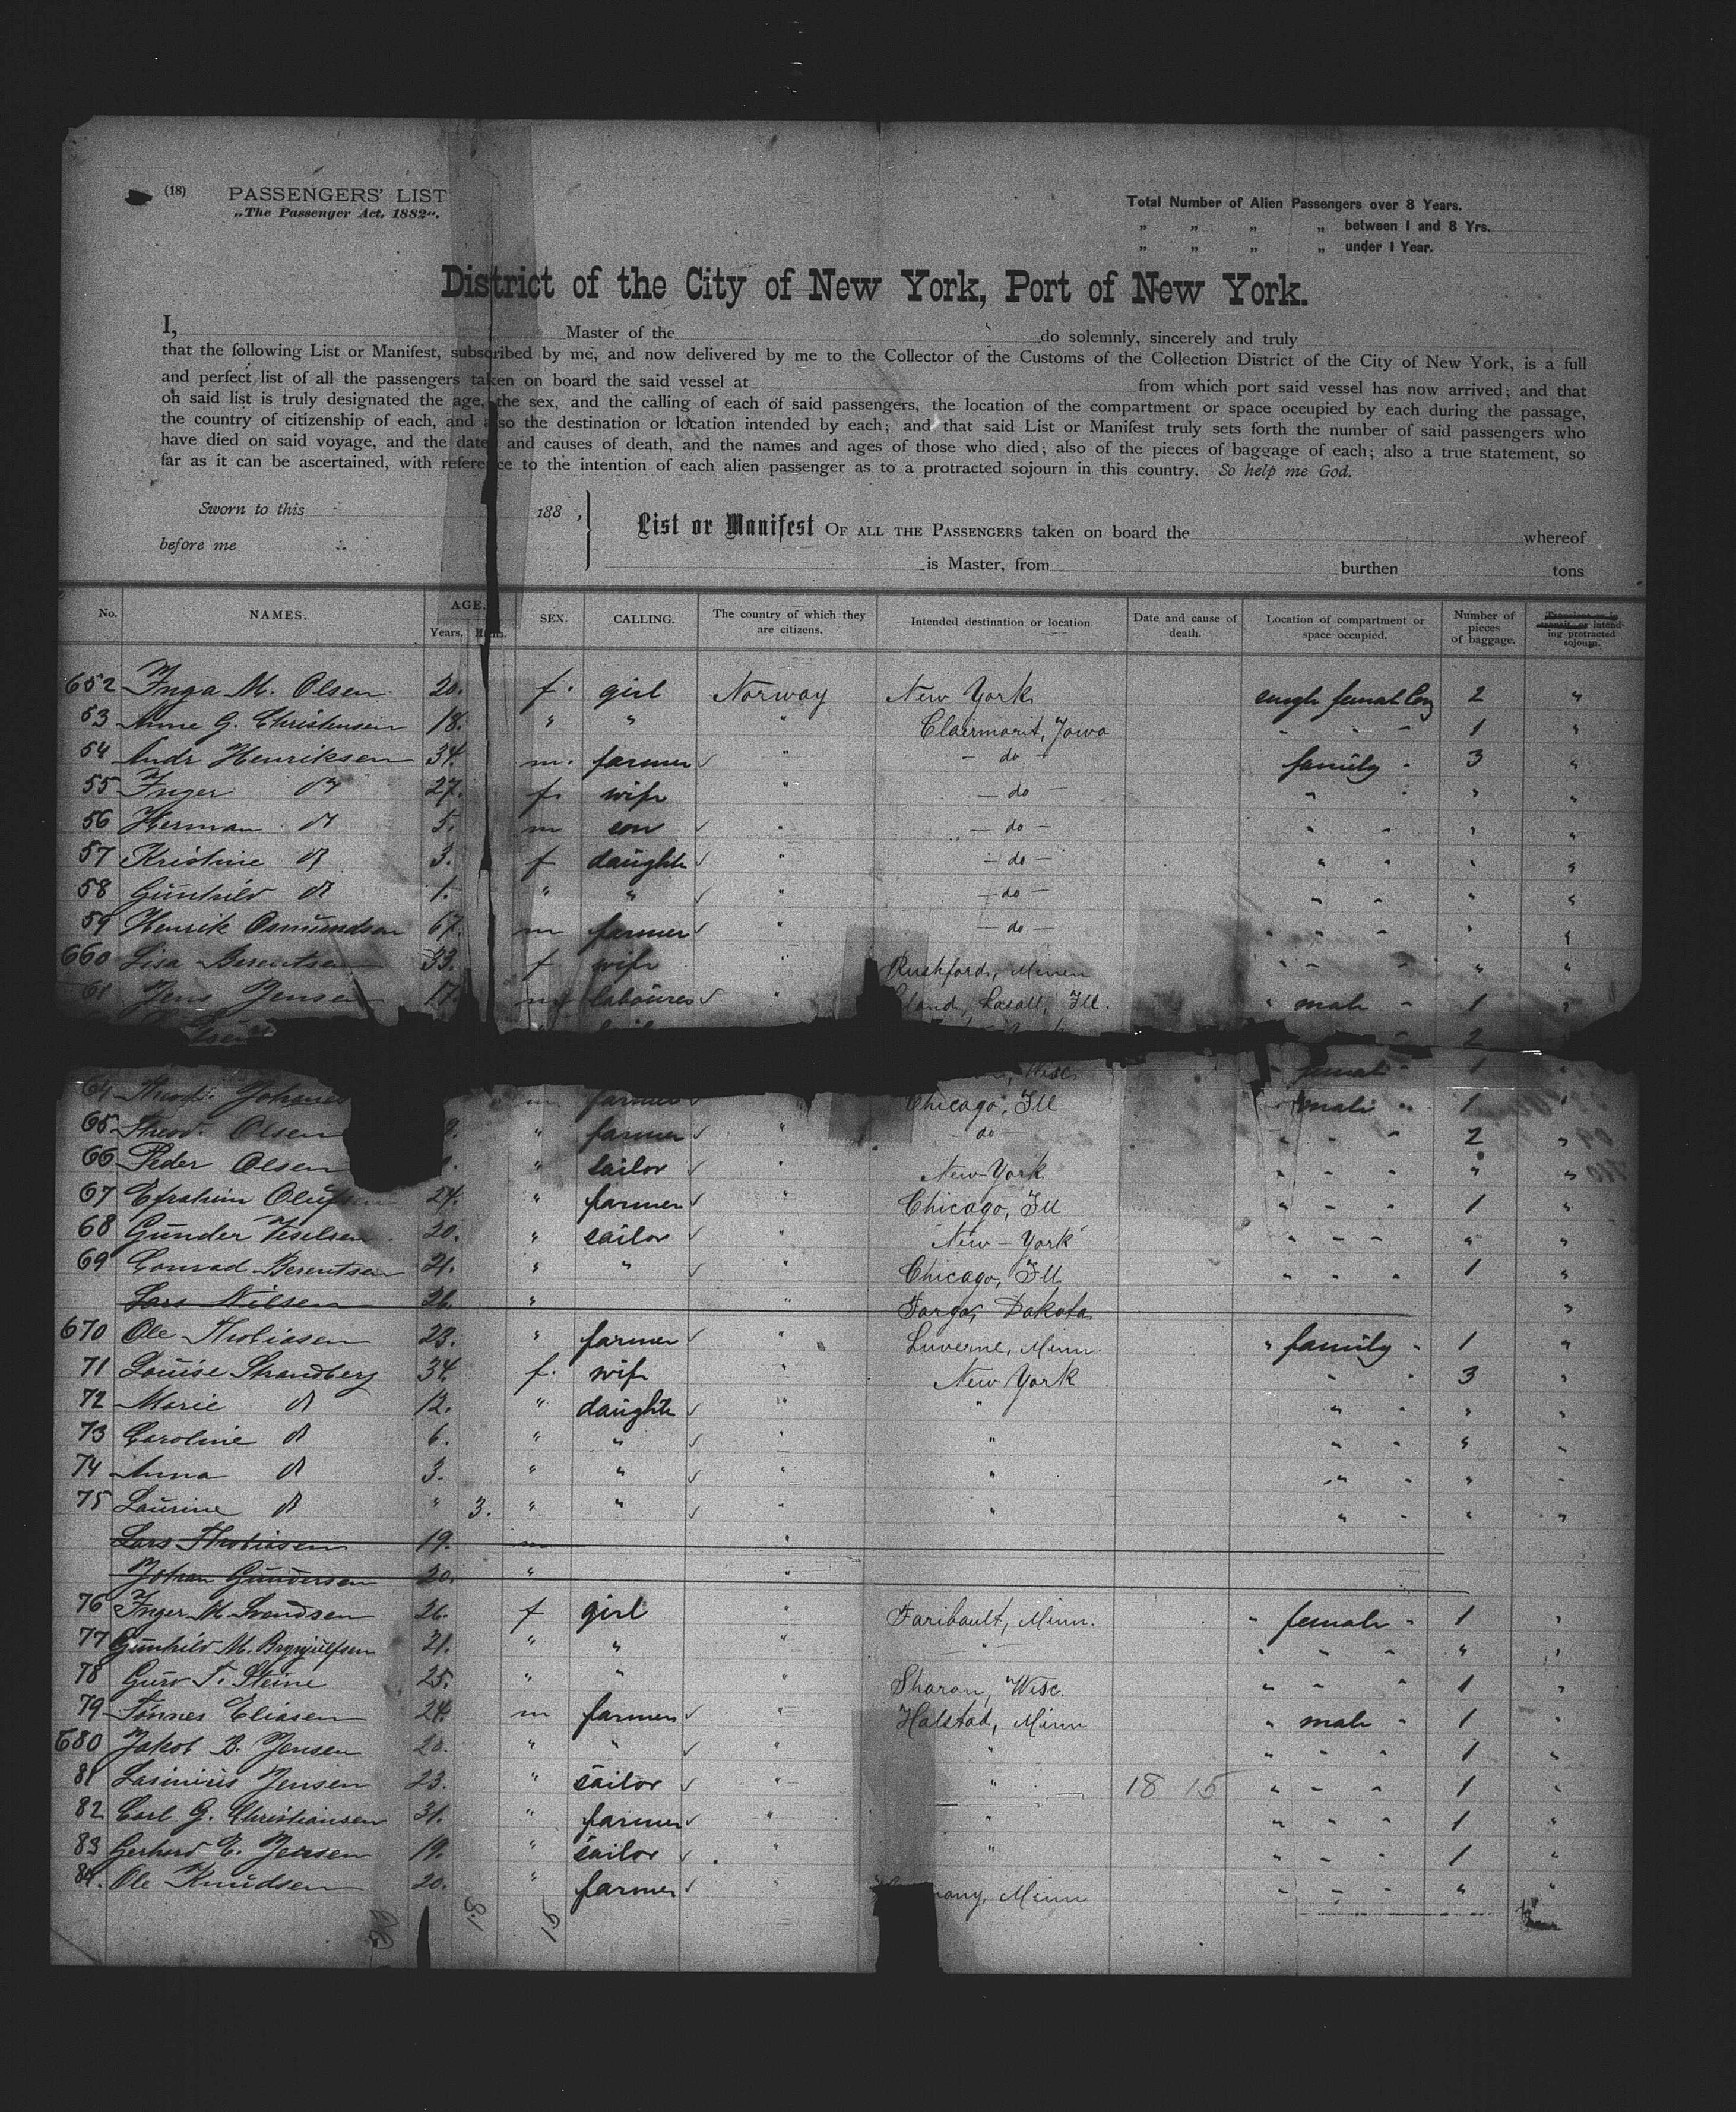 (18) PASSENGERS' LIST
„The Passenger Act, 1882".
Total Number of Alien Passengers over 8 Years.
„ „ „ „ between 1 and 8 Yrs.
„ „ „ „ under 1 Year.
District of the City of New York, Port of New York.
I, Master of the do solemnly, sincerely and truly
that the following List or Manifest, subscribed by me, and now delivered by me to the Collector of the Customs of the Collection District of the City of New York, is a full
and perfect list of all the passengers taken on board the said vessel at from which port said vessel has now arrived; and that
on said list is truly designated the age, the sex, and the calling of each of said passengers, the location of the compartment or space occupied by each during the passage,
the country of citizenship of each, and also the destination or location intended by each; and that said List or Manifest truly sets forth the number of said passengers who
have died on said voyage, and the dates and causes of death, and the names and ages of those who died; also of the pieces of baggage of each; also a true statement, so
far as it can be ascertained, with reference to the intention of each alien passenger as to a protracted sojourn in this country. So help me God.
Sworn to this 188 ,
before me
List or Manifest OF ALL THE PASSENGERS taken on board the whereof
is Master, from burthen tons
No. NAMES. AGE. Years. SEX. CALLING. The country of which they are citizens. Intended destination or location. Date and cause of death. Location of compartment or space occupied. Number of pieces of baggage. intending protracted sojourn.
652 Inga M. Olsen 20. f. girl Norway New York 2 "
53 Anne G. Christensen 18. " " " Clairmont, Iowa " " " 1 "
54 Andr Henriksen 34. m. farmer " - do - family " 3 "
55 Inger do 27. f. wife " - do - " " " "
56 Herman do 5. m son " - do - " " " "
57 Kristine do 3. f daughte " - do - " " " "
58 Gunhild do 1. " " " - do - " " " "
59 Henrik Osmundsen 67. m farmer " - do - " " " " "
660 Lisa Berentsen 33. f wife " Rushford, Minn " " " " "
61 Jens Jensen 17. m labourer " land, Lasall, Ill. " male " 1 "
2
Wisc. female 1
64 Theod. farmer Chicago, Ill " male " 1
65 Theod. Olsen " farmer " - do - " " " 2 "
66 Peder Olsen " sailor " New-York " " " " "
67 Efrahim 24. " farmer " Chicago, Ill " " " 1 "
68 Gunder 20. " sailor " New-York " " " " "
69 Conrad Berentsen 21. " " " Chicago, Ill. " " " 1 "
Lars Nilsen 26. " " Fargo, Dakota "
670 Ole Thobiasen 23. " farmer " Luverne, Minn. " family " 1 "
71 Louise Strandberg 34. f. wife " New York " " 3 "
72 Marie do 12. " daughte " " " " " "
73 Caroline do 6. " " " " " " " "
74 Anna do 3. " " " " " " " "
75 Laurine do " 3. " " " " " " " "
Lars Thobiasen 19. m "
Johan Gundersen 20. " "
76 Inger M. Svendsen 26. f girl " Faribault, Minn. " female " 1 "
77 Gunhild M. Brynjulfsen 21. " " " " " " " " "
78 Guro T. Steine 25. " " " Sharon, Wisc. " " " 1 "
79 Tönnes Eliasen 24. m farmer " Halstad, Minn " male " 1 "
680 Jakob B. Jensen 20. " " " " " " 1 "
81 Jensen 23. " sailor " " 18 15 " " " 1 "
82 Carl G. Christiansen 31. " farmer " " " " " 1 "
83 Gerhard E. Jensen 19. " sailor " " " " " 1 "
84. Ole Knudsen 20. " farmer " Minn " " " " "
18 15